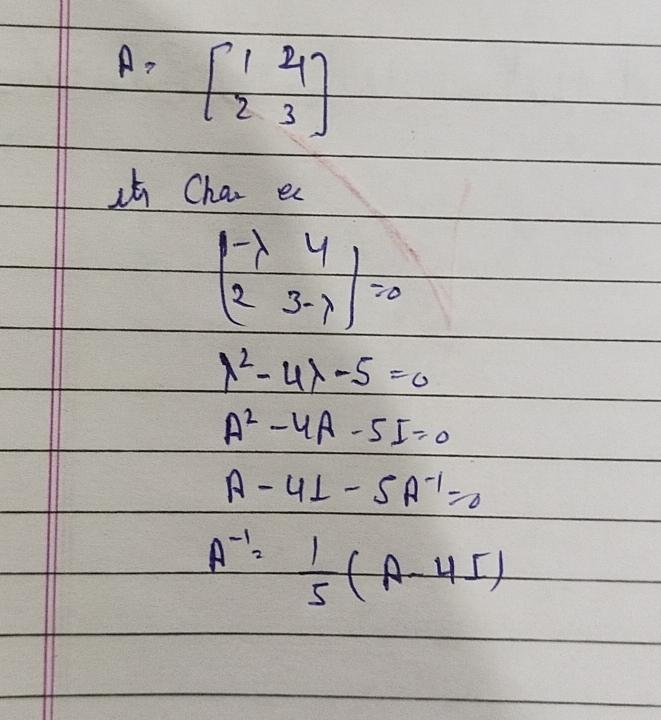 A = [ 1 4
2 3 ]
its Char ec
| 1-λ 4
2 3-λ | =0
λ² - 4λ - 5 = 0
A² - 4A - 5I = 0
A - 4I - 5A⁻¹ = 0
A⁻¹ = 1/5 ( A - 4I )